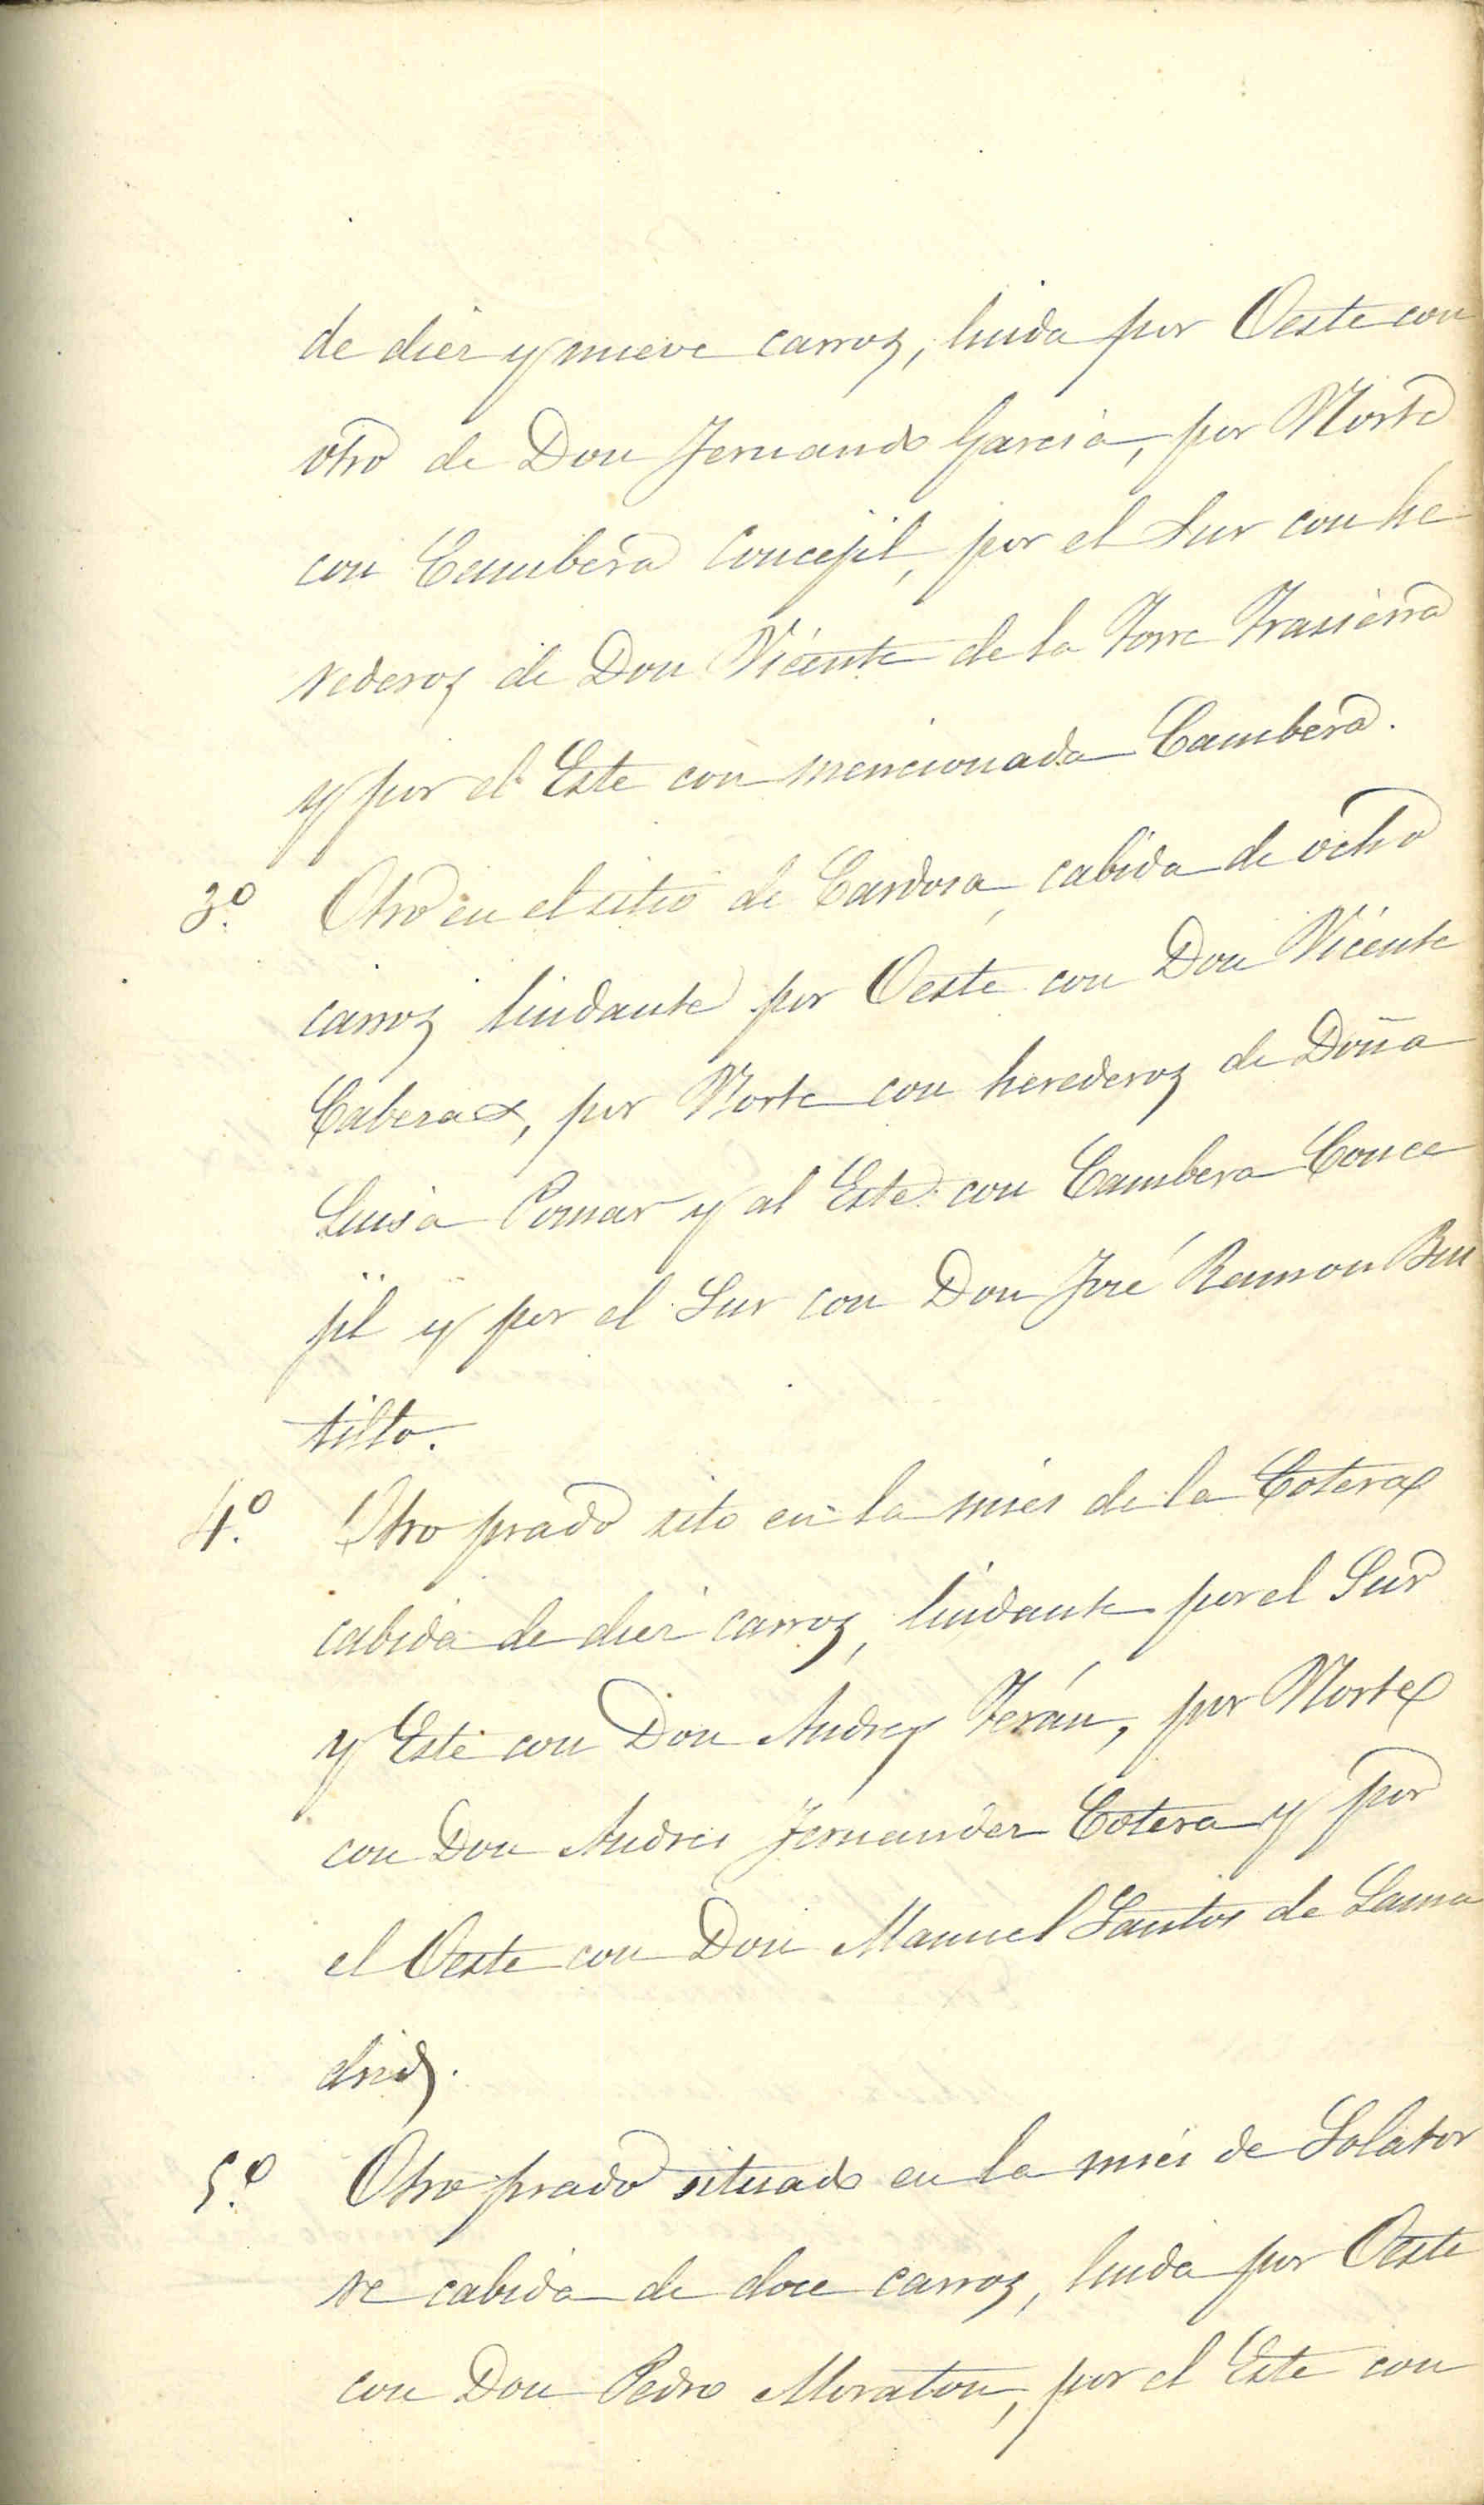 de diez y nueve carros, linda por Oeste con
otro de Don Fernando Garcia, por Norte
con Cambera Concejil, por el Sur con he
rederos de Don Vicente de la Torre Trasierra
y por el Este con mencionada Cambera.
3.º Otro en el sitio de Cardosa, cabida de ocho
carros lindante por Oeste con Don Vicente
Cabeza, por Norte con herederos de Doña
Luisa Pomar y al Este con Cambera Conce
jil y por el Sur con Don José Ramon Bus
tillo.
4.º Otro prado sito en la mies de la Cotera
cabida de diez carros, lindante por el Sur
y Este con Don Andres Terán, por Norte
con Don Andres Fernandez Cotera y por
el Oeste con Don Manuel Santos de Lama
drid.
5.º Otro prado situado en la mies de Solator
re cabida de doce carros, linda por Oeste
con Don Pedro Moraton, por el Este con